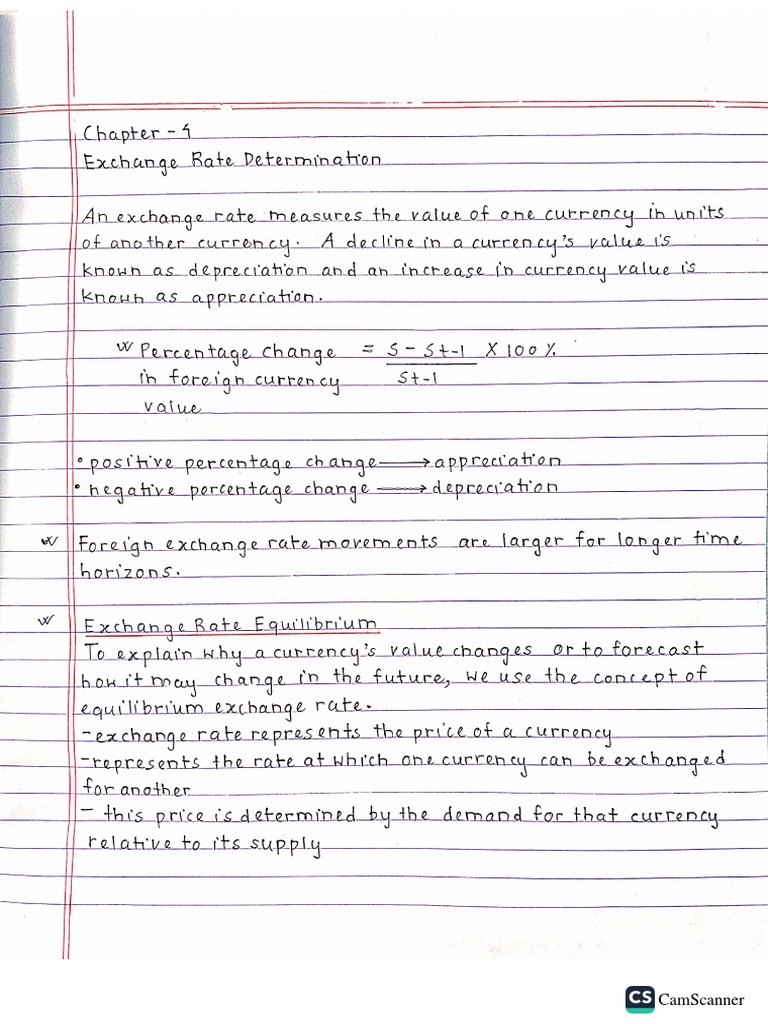 Chapter - 4
Exchange Rate Determination
An exchange rate measures the value of one currency in units
of another currency. A decline in a currency's value is
known as depreciation and an increase in currency value is
known as appreciation.
w Percentage change = S - St-1 X 100%
in foreign currency St-1
value
• positive percentage change → appreciation
• negative percentage change → depreciation
w Foreign exchange rate movements are larger for longer time
horizons.
w Exchange Rate Equilibrium
To explain why a currency's value changes or to forecast
how it may change in the future, we use the concept of
equilibrium exchange rate.
- exchange rate represents the price of a currency
- represents the rate at which one currency can be exchanged
for another
- this price is determined by the demand for that currency
relative to its supply
CS CamScanner